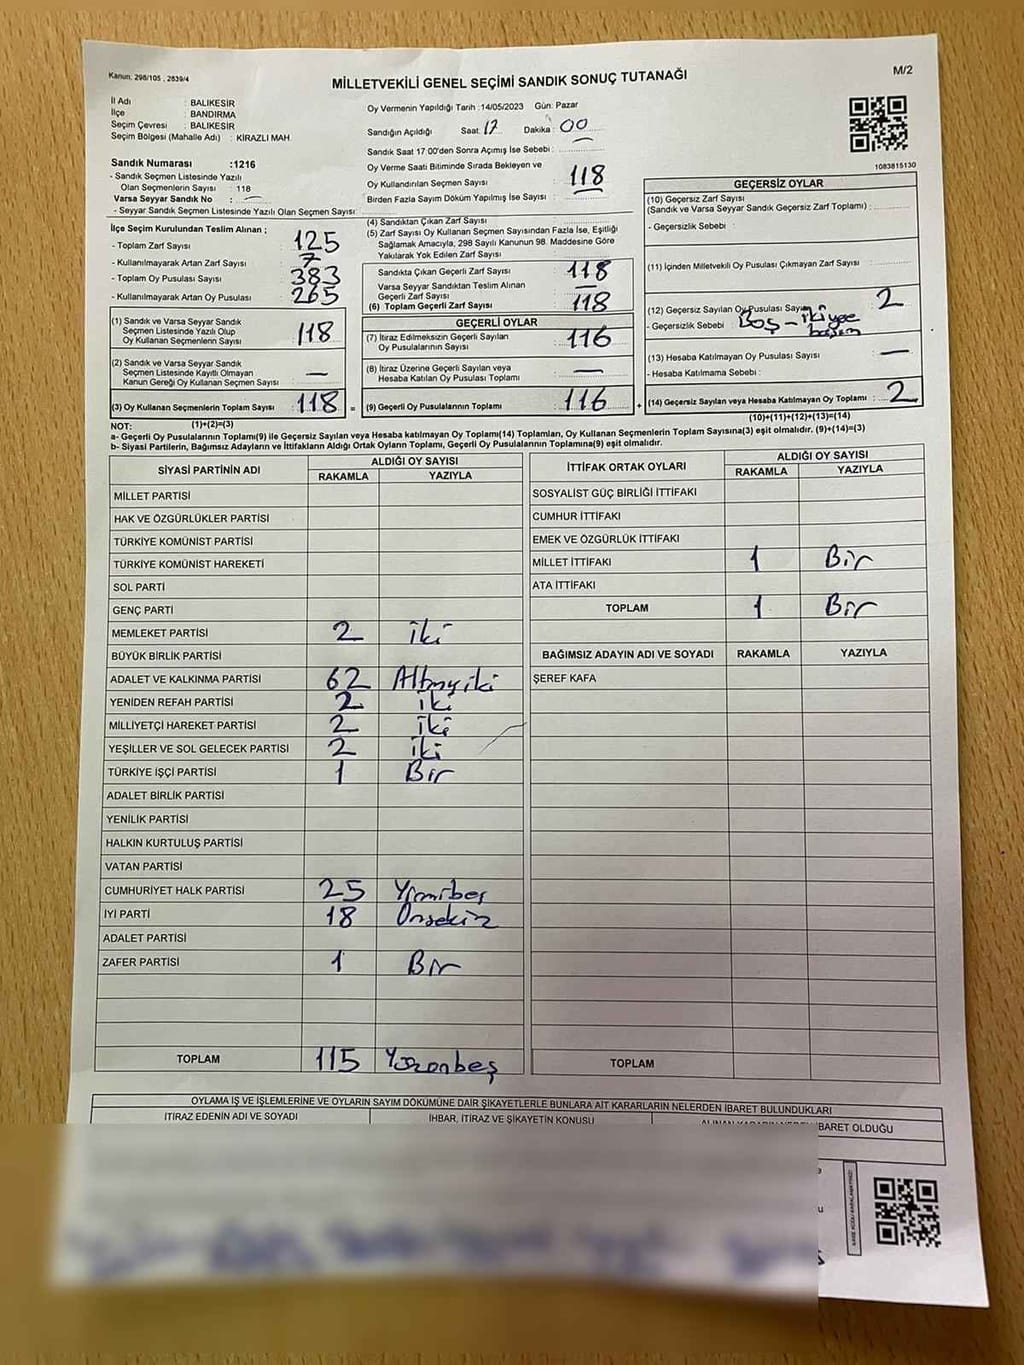 Kanun: 298/105 , 2839/4
MİLLETVEKİLİ GENEL SEÇİMİ SANDIK SONUÇ TUTANAĞI
M/2
İl Adı : BALIKESİR
İlçe : BANDIRMA
Seçim Çevresi : BALIKESİR
Seçim Bölgesi (Mahalle Adı) : KİRAZLI MAH.
Oy Vermenin Yapıldığı Tarih :14/05/2023 Gün: Pazar
Sandığın Açıldığı Saat: 17 Dakika : 00
Sandık Saat 17:00'den Sonra Açımış İse Sebebi :
Oy Verme Saati Bitiminde Sırada Bekleyen ve
Oy Kullandırılan Seçmen Sayısı 118
Birden Fazla Sayım Döküm Yapılmış İse Sayısı :
1083815130
Sandık Numarası :1216
- Sandık Seçmen Listesinde Yazılı
Olan Seçmenlerin Sayısı : 118
Varsa Seyyar Sandık No : —
- Seyyar Sandık Seçmen Listesinde Yazılı Olan Seçmen Sayısı :
İlçe Seçim Kurulundan Teslim Alınan ;
- Toplam Zarf Sayısı 125
- Kullanılmayarak Artan Zarf Sayısı 7
- Toplam Oy Pusulası Sayısı : 383
- Kullanılmayarak Artan Oy Pusulası 265
(1) Sandık ve Varsa Seyyar Sandık
Seçmen Listesinde Yazılı Olup
Oy Kullanan Seçmenlerin Sayısı 118
(2) Sandık ve Varsa Seyyar Sandık
Seçmen Listesinde Kayıtlı Olmayan
Kanun Gereği Oy Kullanan Seçmen Sayısı —
(3) Oy Kullanan Seçmenlerin Toplam Sayısı : 118 =
(4) Sandıktan Çıkan Zarf Sayısı :
(5) Zarf Sayısı Oy Kullanan Seçmen Sayısından Fazla İse, Eşitliği
Sağlamak Amacıyla, 298 Sayılı Kanunun 98. Maddesine Göre
Yakılarak Yok Edilen Zarf Sayısı :
Sandıkta Çıkan Geçerli Zarf Sayısı 118
Varsa Seyyar Sandıktan Teslim Alınan
Geçerli Zarf Sayısı : —
(6) Toplam Geçerli Zarf Sayısı 118
GEÇERLİ OYLAR
(7) İtiraz Edilmeksizin Geçerli Sayılan
Oy Pusulalarının Sayısı : 116
(8) İtiraz Üzerine Geçerli Sayılan veya
Hesaba Katılan Oy Pusulası Toplamı —
(9) Geçerli Oy Pusulalarının Toplamı 116 +
GEÇERSİZ OYLAR
(10) Geçersiz Zarf Sayısı
(Sandık ve Varsa Seyyar Sandık Geçersiz Zarf Toplamı) :
- Geçersizlik Sebebi :
(11) İçinden Milletvekili Oy Pusulası Çıkmayan Zarf Sayısı
(12) Geçersiz Sayılan Oy Pusulası Sayısı 2
- Geçersizlik Sebebi : Boş - ikiye
(13) Hesaba Katılmayan Oy Pusulası Sayısı —
- Hesaba Katılmama Sebebi :
(14) Geçersiz Sayılan veya Hesaba Katılmayan Oy Toplamı : 2
NOT: (1)+(2)=(3)
(10)+(11)+(12)+(13)=(14)
a- Geçerli Oy Pusulalarının Toplamı(9) ile Geçersiz Sayılan veya Hesaba katılmayan Oy Toplamı(14) Toplamları, Oy Kullanan Seçmenlerin Toplam Sayısına(3) eşit olmalıdır. (9)+(14)=(3)
b- Siyasi Partilerin, Bağımsız Adayların ve İttifakların Aldığı Ortak Oyların Toplamı, Geçerli Oy Pusulalarının Toplamına(9) eşit olmalıdır.
SİYASİ PARTİNİN ADI ALDIĞI OY SAYISI
RAKAMLA YAZIYLA
MİLLET PARTİSİ
HAK VE ÖZGÜRLÜKLER PARTİSİ
TÜRKİYE KOMÜNİST PARTİSİ
TÜRKİYE KOMÜNİST HAREKETİ
SOL PARTİ
GENÇ PARTİ
MEMLEKET PARTİSİ 2 iki
BÜYÜK BİRLİK PARTİSİ
ADALET VE KALKINMA PARTİSİ 62 Altmışiki
YENİDEN REFAH PARTİSİ 2 iki
MİLLİYETÇİ HAREKET PARTİSİ 2 iki
YEŞİLLER VE SOL GELECEK PARTİSİ 2 iki
TÜRKİYE İŞÇİ PARTİSİ 1 Bir
ADALET BİRLİK PARTİSİ
YENİLİK PARTİSİ
HALKIN KURTULUŞ PARTİSİ
VATAN PARTİSİ
CUMHURİYET HALK PARTİSİ 25 Yirmibeş
İYİ PARTİ 18 Onsekiz
ADALET PARTİSİ
ZAFER PARTİSİ 1 Bir
TOPLAM 115 Yüzonbeş
İTTİFAK ORTAK OYLARI ALDIĞI OY SAYISI
RAKAMLA YAZIYLA
SOSYALİST GÜÇ BİRLİĞİ İTTİFAKI
CUMHUR İTTİFAKI
EMEK VE ÖZGÜRLÜK İTTİFAKI
MİLLET İTTİFAKI 1 Bir
ATA İTTİFAKI
TOPLAM 1 Bir
BAĞIMSIZ ADAYIN ADI VE SOYADI RAKAMLA YAZIYLA
ŞEREF KAFA
TOPLAM
OYLAMA İŞ VE İŞLEMLERİNE VE OYLARIN SAYIM DÖKÜMÜNE DAİR ŞİKAYETLERLE BUNLARA AİT KARARLARIN NELERDEN İBARET BULUNDUKLARI
İTİRAZ EDENİN ADI VE SOYADI İHBAR, İTİRAZ VE ŞİKAYETİN KONUSU
BARET OLDUĞU